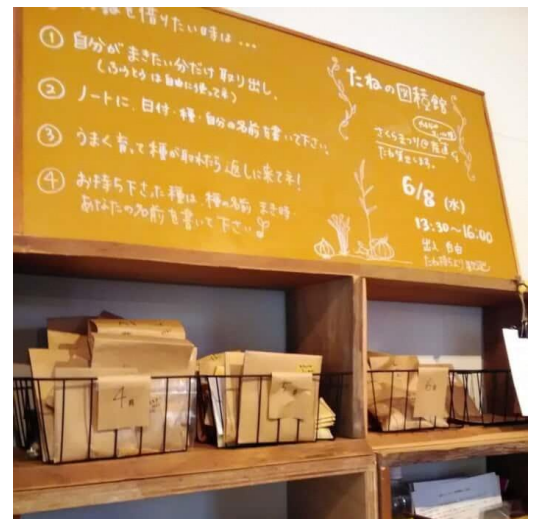 を借りたい時は…
① 自分がまきたい分だけ取り出し、
(ふうとうは自由に使ってネ)
② ノートに、日付・種・自分の名前を書いて下さい。
③ うまく育って種が取れたら返しに来てネ!
④ お持ち下さった種は、種の名前 まき時
あなたの名前を書いて下さい
たねの図書館
6/8 (水)
13:30〜16:00
出入 自由
4月
6月